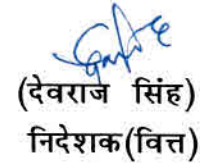 (देवराज सिंह)
निदेशक(वित्त)